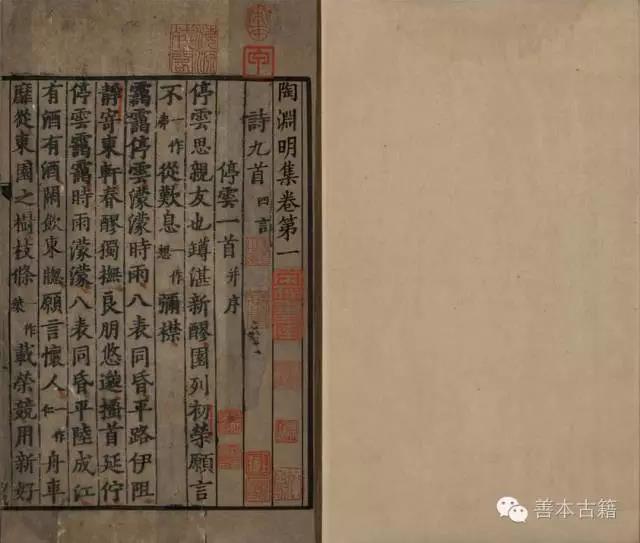 陶淵明集卷第一
詩九首 四言
停雲一首 并序
停雲思親友也罇湛新醪園列初榮願言
不一作弗從歎息一作想彌襟
靄靄停雲濛濛時雨八表同昏平路伊阻
靜寄東軒春醪獨撫良朋悠邈搔首延佇
停雲靄靄時雨濛濛八表同昏平陸成江
有酒有酒閑飲東牕願言懷人一作仁舟車
靡從東園之樹枝條一作葉載榮競用新好
善本古籍